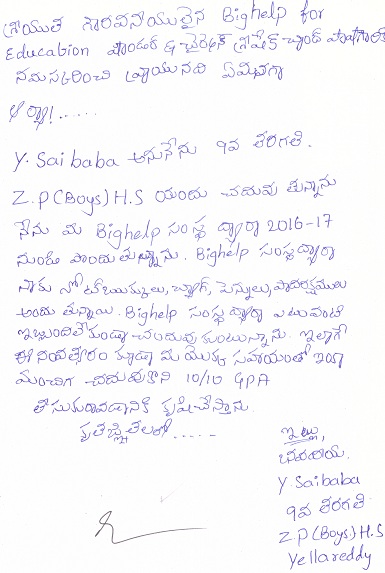 శ్రీయుత గౌరవనీయులైన Bighelp for
Education ఫౌండర్ & చైర్మెన్ చాంద్ పాషాగారికి
నమస్కరించి వ్రాయునది ఏమనగా
ఆర్యా!......
Y. Saibaba అనునేను 9వ తరగతి.
Z.P(Boys)H.S యందు చదువు తున్నాను
నేను మీ Bighelp సంస్థ ద్వారా 2016-17
నుండి పొందుతున్నాను. Bighelp సంస్థ ద్వారా
నాకు నోట్‌బుక్కులు, బ్యాగ్, పెన్నులు,
అందు తున్నాయి. Bighelp సంస్థ ద్వారా ఎటువంటి
ఇబ్బందిలేకుండా చదువుకుంటున్నాను. ఇలాగే
ఈ సంవత్సరం కూడా మీ యొక్క సహాయంతో
మంచిగ చదువుకొని 10/10 GPA
తీసుకురావడానికి కృషిచేస్తాను.
కృతజ్ఞతలతో.....
ఇట్లు,
Y. Saibaba
9వ తరగతి
Z.P(Boys)H.S
Yellareddy